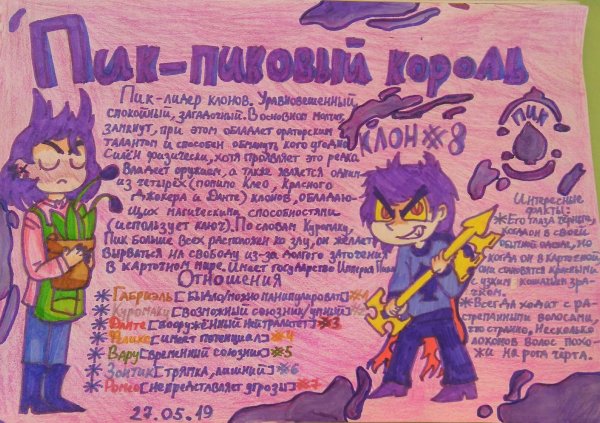 Пик-пиковый король
Пик-лидер клонов. Уравновешенный,
спокойный, загадочный. В основном молчит,
замкнут, при этом обладает ораторским
талантом и способен обмануть кого угодно.
Силён физически, хотя проявляет это редко.
Владеет оружием, а также является одним
из четырёх (помимо Клео, Красного
Джокера и Данте) клонов, обладаю-
щих магическими способностями
(использует ключ). По словам Куромаку,
Пик больше всех расположен ко злу, он желает
вырваться на свободу из-за долгого заточения
в карточном мире. Имеет государство Империя Пика
Отношения
*Габриэль [было/можно манипулировать] #1
*Куромаку [возможный союзник/умный]
*Данте [вооружённый нейтралитет] #3
*Феликс [имеет потенциал] #4
*Вару [временный союзник] #5
*Зонтик [тряпка, лишний] #6
*Ромео [не представляет угрозы] #7
27.05.19
КЛОН #8
ПИК
Интересные
факты:
*Его глаза
когда он в своей
обычной но
когда он в карточной
они становятся красными
с узким кошачьим зра-
чком.
*Всегда ходит с ра-
стрёпанными волосами,
что странно. Несколько
локонов волос похо-
жи на рога чёрта.